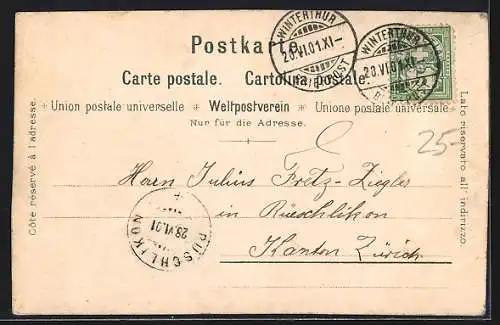 Postkarte.
WINTERTHUR
28.VI.01.XI-
BRIEFPOST
WINTERTHUR
28.VI.01.XI-
Carte postale. Cartolina postale.
Union postale universelle * Weltpostverein * Unione postale universale
Nur für die Adresse.
Côte réservé à l'adresse.
Lato riservato all' indirizzo
25-
Herrn Julius Fretz-Ziegler
in Rüschlikon
Kanton Zürich
RÜSCHLIKON
28.VI.01